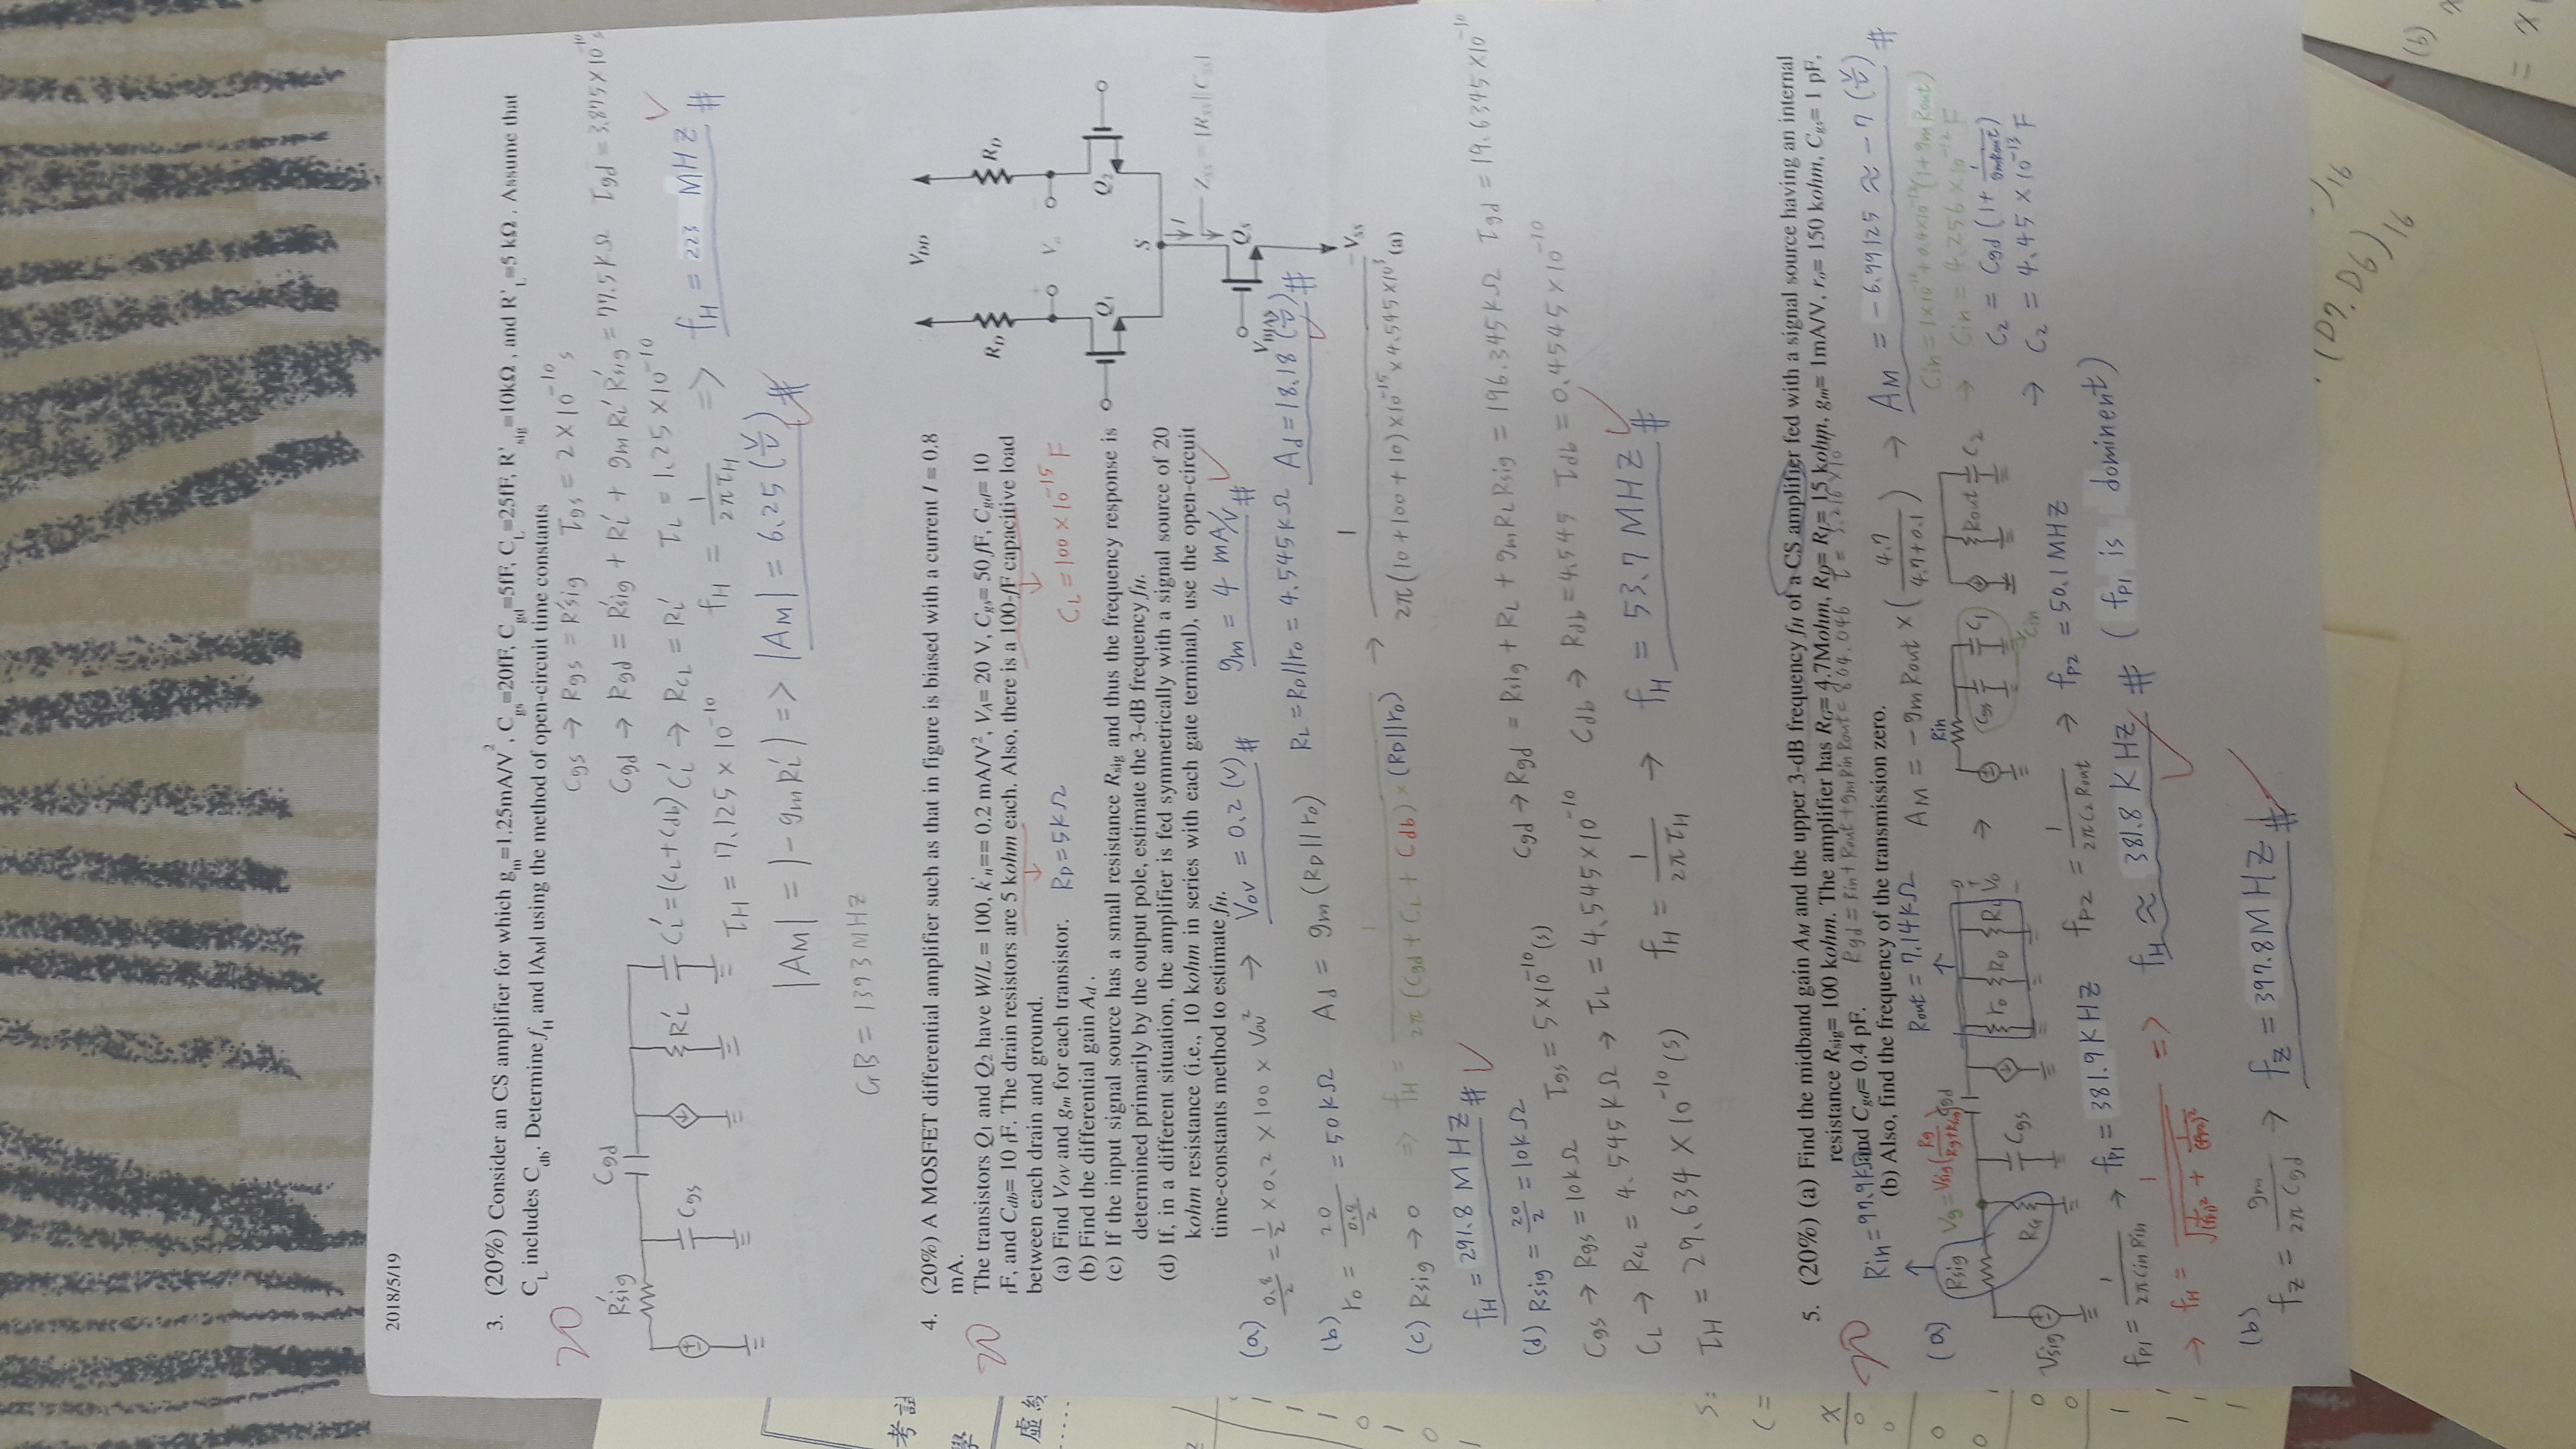 2018/5/19
3. (20%) Consider an CS amplifier for which gm=1.25mA/V², Cgs=20fF, Cgd=5fF, CL=25fF, R'sig=10kΩ, and R'L=5 kΩ. Assume that
CL includes Cdb. Determine fH and |AM| using the method of open-circuit time constants
20
Cgs → Rgs = R'sig τgs = 2×10⁻¹⁰ s
Cgd → Rgd = R'sig + RL' + gm RL' R'sig = 77.5kΩ τgd = 3.875×10⁻¹⁰ s
R'sig Cgd
Cgs RL' CL' = (CL+Cdb) CL' → RCL = RL' τL = 1.25×10⁻¹⁰
τH = 17.125×10⁻¹⁰ fH = 1/2πτH => fH = 223 MHz #
|AM| = |-gmRL'| => |AM| = 6.25 (V/V) #
GB = 1393MHz
4. (20%) A MOSFET differential amplifier such as that in figure is biased with a current I = 0.8
mA.
20
The transistors Q1 and Q2 have W/L = 100, k'n== 0.2 mA/V², VA= 20 V, Cgs= 50 fF, Cgd= 10
fF, and Cdb= 10 fF. The drain resistors are 5 kohm each. Also, there is a 100-fF capacitive load
between each drain and ground.
(a) Find VOV and gm for each transistor. RD=5kΩ CL=100×10⁻¹⁵ F
(b) Find the differential gain Ad.
(c) If the input signal source has a small resistance Rsig and thus the frequency response is
determined primarily by the output pole, estimate the 3-dB frequency fH.
(d) If, in a different situation, the amplifier is fed symmetrically with a signal source of 20
kohm resistance (i.e., 10 kohm in series with each gate terminal), use the open-circuit
time-constants method to estimate fH.
VDD
RD RD
Vo
Q1 Q2
S
I
ZSS = [RSS||CSS]
QS
VBIAS
-VSS
(a)
(a) 0.8/2 = 1/2 × 0.2 × 100 × Vov² → Vov = 0.2 (V) # gm = 4 mA/V #
(b) ro = 20/(0.8/2) = 50kΩ Ad = gm(RD||ro) RL = RD||ro = 4.545kΩ Ad = 18.18 (V/V) #
(c) Rsig → 0 => fH = 1/2π(Cgd + CL + Cdb) × (RD||ro) → 1/2π(10+100+10)×10⁻¹⁵×4.545×10³
fH = 291.8 MHZ #
(d) Rsig = 20/2 = 10kΩ Cgd → Rgd = Rsig + RL + gmRLRsig = 196.345kΩ τgd = 19.6345×10⁻¹⁰
Cgs → Rgs = 10kΩ τgs = 5×10⁻¹⁰(s)
CL → RCL = 4.545kΩ → τL = 4.545×10⁻¹⁰ Cdb → Rdb = 4.545 τdb = 0.4545×10⁻¹⁰
τH = 29.634×10⁻¹⁰(s) fH = 1/2πτH → fH = 53.7 MHZ #
5. (20%) (a) Find the midband gain AM and the upper 3-dB frequency fH of a CS amplifier fed with a signal source having an internal
resistance Rsig= 100 kohm. The amplifier has RG= 4.7Mohm, RD= RL= 15 kohm, gm= 1mA/V, ro= 150 kohm, Cgs= 1 pF,
and Cgd= 0.4 pF.
20
Rgd = Rin + Rout + gmRinRout = 804.046
Rin = 97.9kΩ
(b) Also, find the frequency of the transmission zero.
(a) Rout = 7.14kΩ AM = -gmRout × (4.7/4.7+0.1) → AM = -6.99125 ≈ -7 (V/V) #
Rsig Vg = Vsig(RG/RG+Rsig) Cgd
Vsig RG Cgs ro RD RL Vo
Rin Cgs C1 Cin Rout C2
→ Cin = 4.256×10⁻¹² F
C2 = Cgd(1+1/gmRout)
→ C2 = 4.45×10⁻¹³ F
fP1 = 1/2πCinRin → fP1 = 381.9KHZ fP2 = 1/2πC2Rout → fP2 = 50.1MHZ
→ fH = 1/√(1/(fP1)² + 1/(fP2)²) => fH ≈ 381.8 KHZ # (fP1 is dominent)
(b) fZ = gm/2πCgd → fZ = 397.8MHZ #
考試
學
虛線
(D7.D6)16
16
(b)